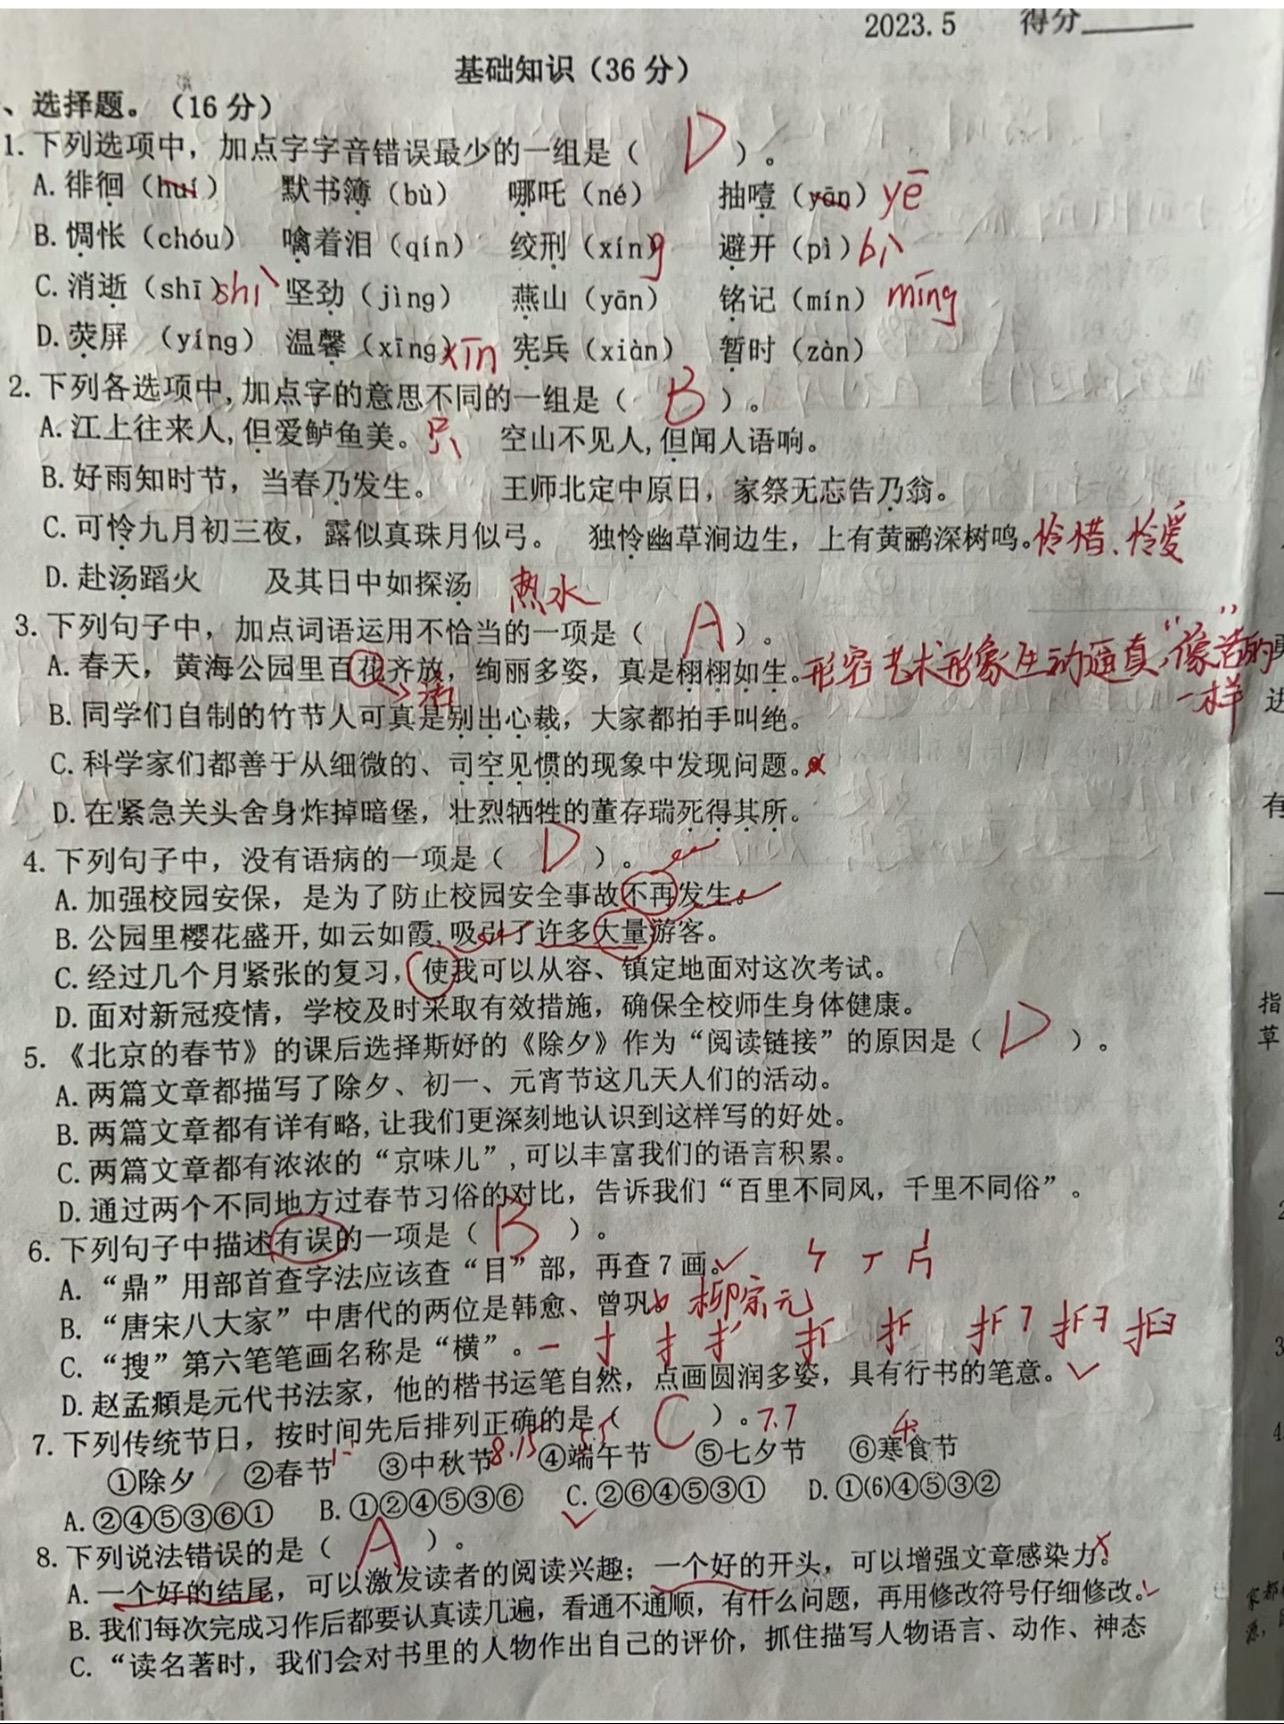 2023.5 得分______
基础知识（36分）
、选择题。（16分）
1.下列选项中，加点字字音错误最少的一组是（ D ）。
A.徘徊（huí） 默书簿（bù） 哪吒（né） 抽噎（yān）yē
B.惆怅（chóu） 噙着泪（qín） 绞刑（xín）g 避开（pì）bì
C.消逝（shī）shì 坚劲（jìng） 燕山（yān） 铭记（mín）míng
D.荧屏（yíng） 温馨（xīng）xīn 宪兵（xiàn） 暂时（zàn）
2.下列各选项中,加点字的意思不同的一组是（ B ）。
A.江上往来人,但爱鲈鱼美。只 空山不见人,但闻人语响。
B.好雨知时节，当春乃发生。 王师北定中原日，家祭无忘告乃翁。
C.可怜九月初三夜，露似真珠月似弓。 独怜幽草涧边生，上有黄鹂深树鸣。怜惜、怜爱
D.赴汤蹈火 及其日中如探汤 热水
3.下列句子中，加点词语运用不恰当的一项是（ A ）。
A.春天，黄海公园里百花齐放，绚丽多姿，真是栩栩如生。形容艺术形象生动逼真，“像活的
一样”
B.同学们自制的竹节人可真是别出心裁，大家都拍手叫绝。
C.科学家们都善于从细微的、司空见惯的现象中发现问题。
D.在紧急关头舍身炸掉暗堡，壮烈牺牲的董存瑞死得其所。
4.下列句子中，没有语病的一项是（ D ）。
A.加强校园安保，是为了防止校园安全事故不再发生。
B.公园里樱花盛开,如云如霞,吸引了许多大量游客。
C.经过几个月紧张的复习，使我可以从容、镇定地面对这次考试。
D.面对新冠疫情，学校及时采取有效措施，确保全校师生身体健康。
5.《北京的春节》的课后选择斯妤的《除夕》作为“阅读链接”的原因是（ D ）。
A.两篇文章都描写了除夕、初一、元宵节这几天人们的活动。
B.两篇文章都有详有略,让我们更深刻地认识到这样写的好处。
C.两篇文章都有浓浓的“京味儿”,可以丰富我们的语言积累。
D.通过两个不同地方过春节习俗的对比，告诉我们“百里不同风，千里不同俗”。
6.下列句子中描述有误的一项是（ B ）。
A.“鼎”用部首查字法应该查“目”部，再查7画。
B.“唐宋八大家”中唐代的两位是韩愈、曾巩。柳宗元
C.“搜”第六笔笔画名称是“横”。
D.赵孟頫是元代书法家，他的楷书运笔自然，点画圆润多姿，具有行书的笔意。
7.下列传统节日，按时间先后排列正确的是（ C ）。7.7
①除夕 ②春节 ③中秋节8.15 ④端午节5.5 ⑤七夕节 ⑥寒食节
A.②④⑤③⑥① B.①②④⑤③⑥ C.②⑥④⑤③① D.①(6)④⑤③②
8.下列说法错误的是（ A ）。
A.一个好的结尾，可以激发读者的阅读兴趣；一个好的开头，可以增强文章感染力。
B.我们每次完成习作后都要认真读几遍，看通不通顺，有什么问题，再用修改符号仔细修改。
C.“读名著时，我们会对书里的人物作出自己的评价，抓住描写人物语言、动作、神态
进
有
指
草